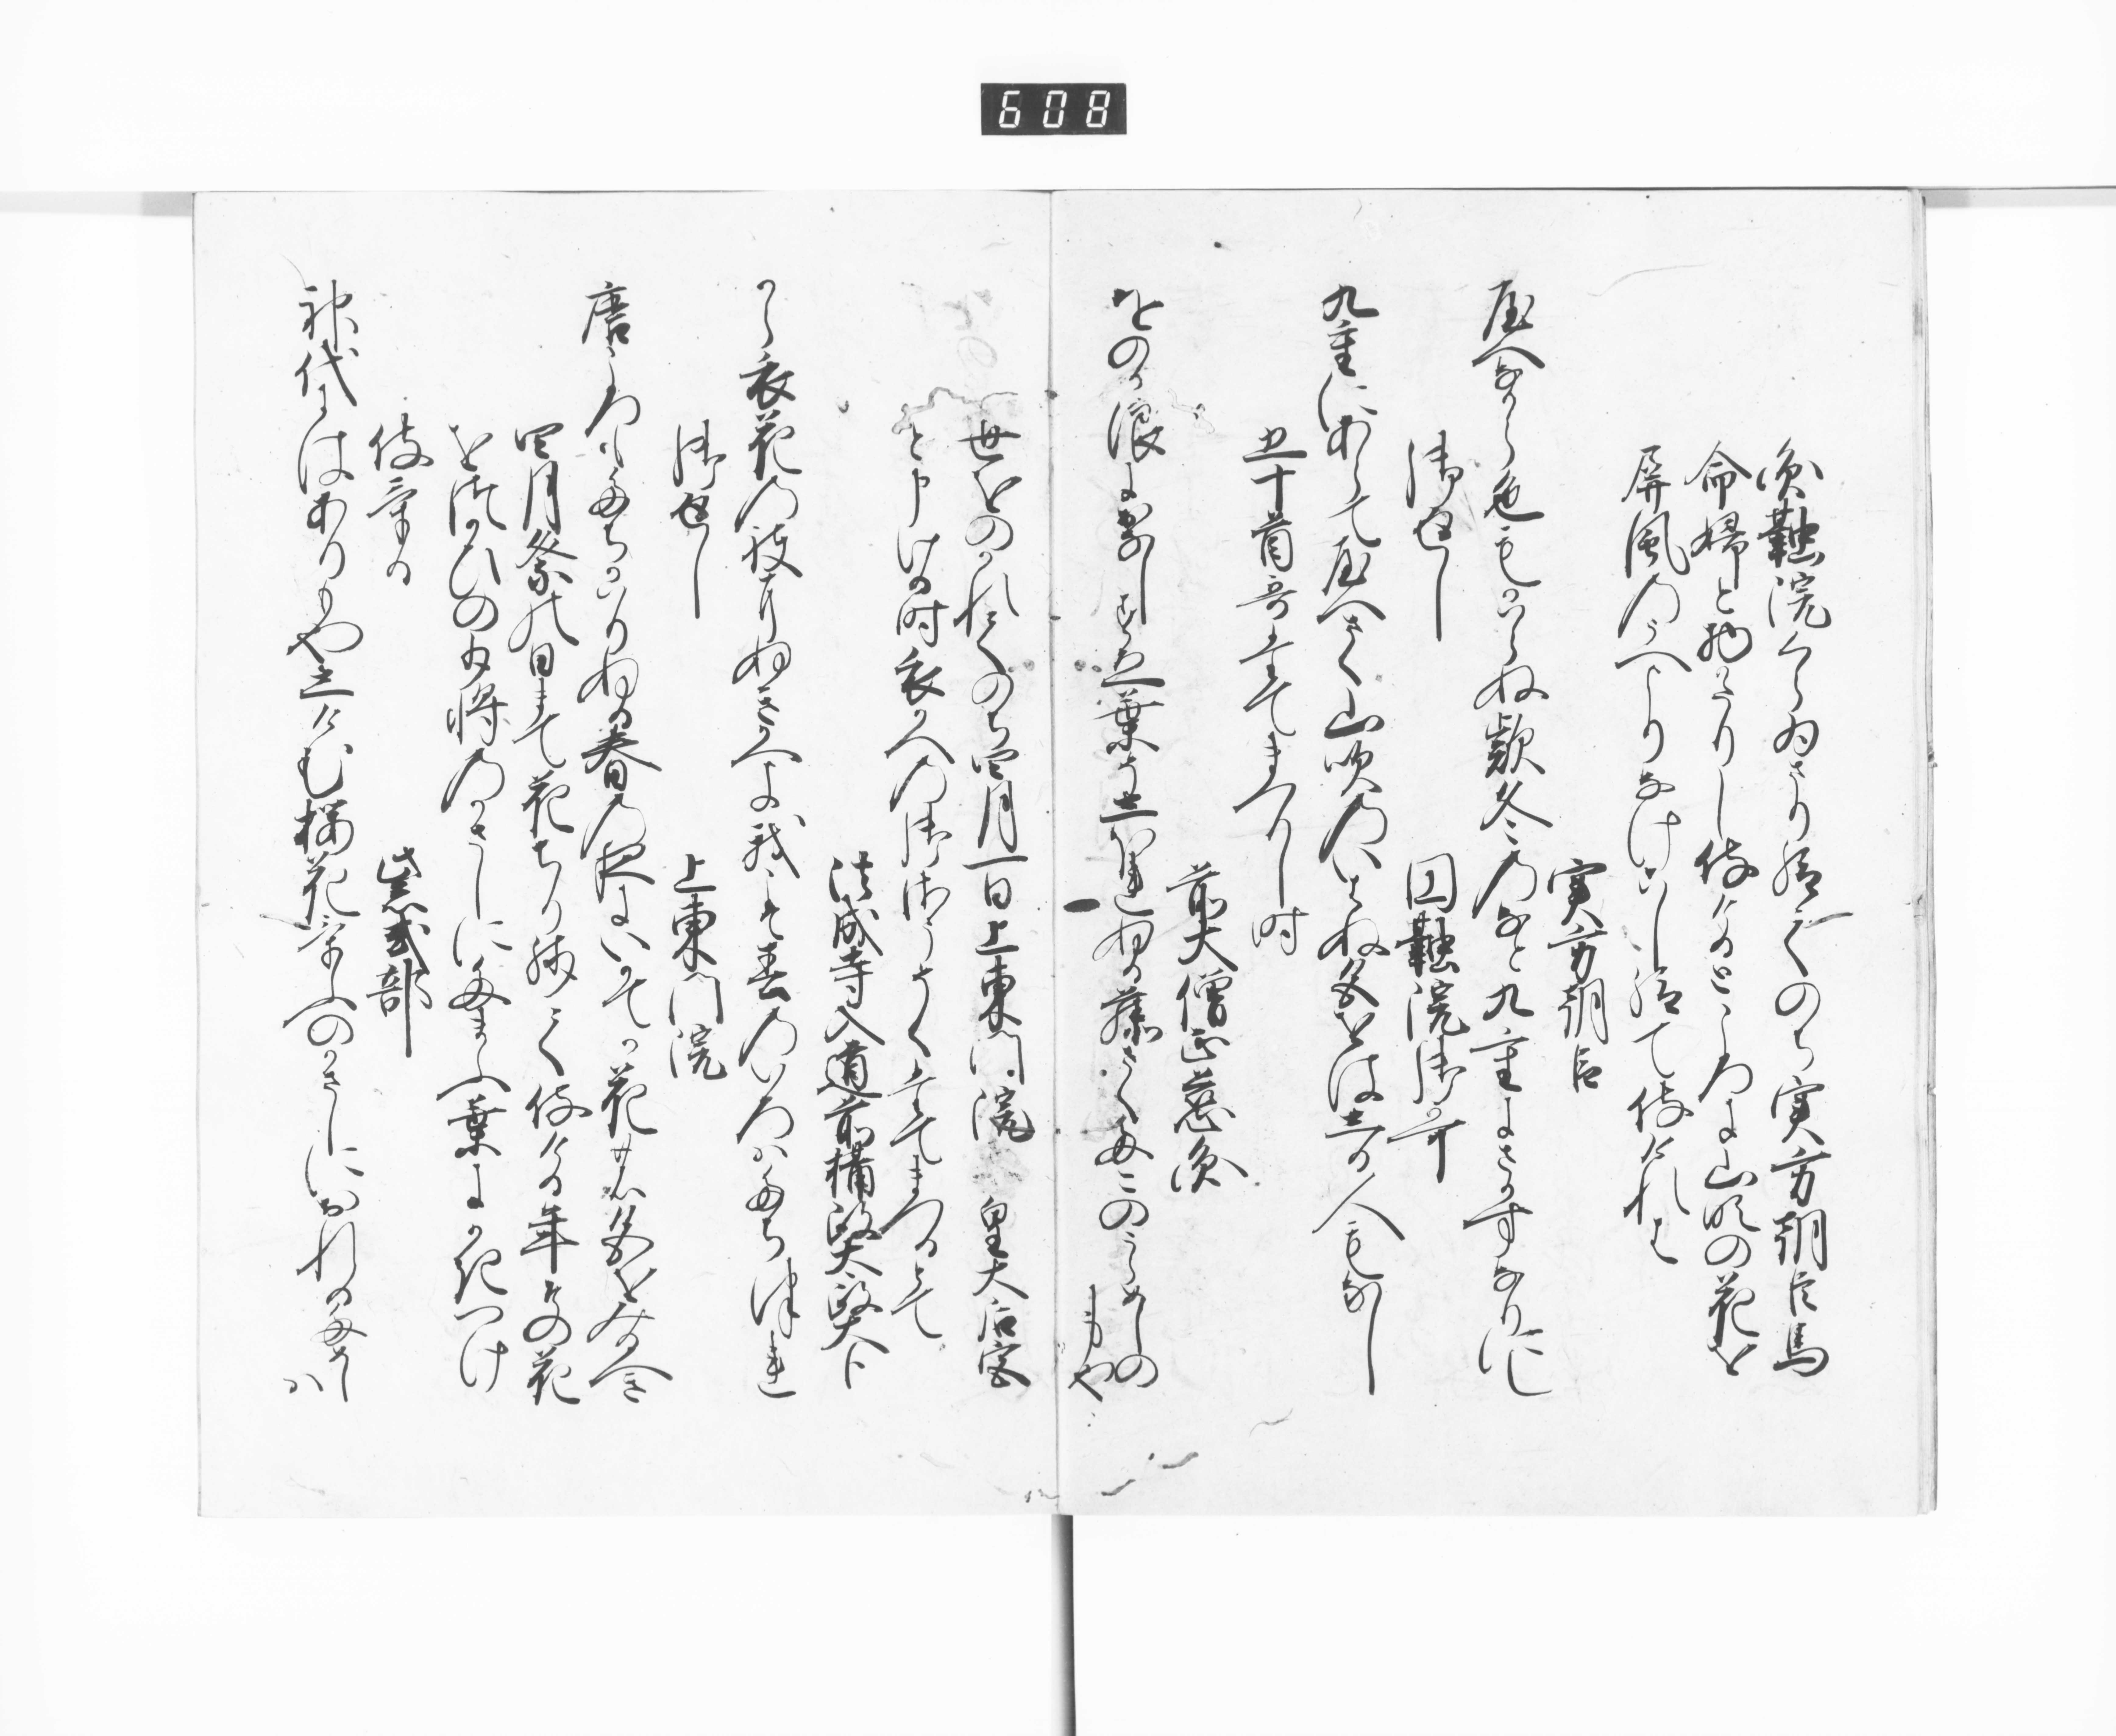 608
円融院くらゐさり給てのち実方朝臣馬
命婦と物かたりし侍けるところに山吹の花を
屏風のうへよりなけこし給て侍けれは
実方朝臣
八重なから色もかはらぬ款冬のなと九重にさかすなりにし
御返し
円融院御哥
九重にあらて八重さく山吹のいはぬ色をはしる人もなし
五十首哥たてまつりし時
前大僧正慈円
をのか浪におなしすゑ葉そしほれぬる藤さくたこのうらめしの
身や
世をのかれてのち四月一日上東門院 皇太后宮
と申ける時衣かへの御御さうそくたてまつるとて
法成寺入道前摂政太政大臣
から衣花の袂にぬきかへよ我こそ春のいろはたちつれ
御返し
上東門院
唐ころもたちかはりぬる春のよにいかてか花の色をみるへき
四月祭の日まて花ちり残て侍ける年その花
を使の少将のかさしにたまふ葉にかきつけ
侍ける
紫式部
神代にはありもやしけむ桜花けふのかさしにおれるためし
は